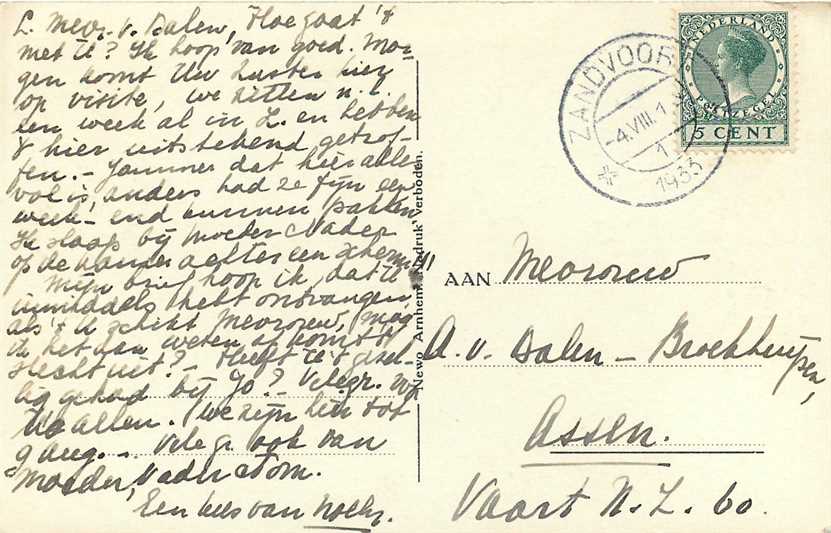 L. Mevr. v. Dalen, Hoe gaat 't
met U? Ik hoop van goed. Mor-
gen komt Uw zuster hier
op visite, we zitten n.l.
een week al in Z. en hebben
't hier uitstekend getrof-
fen. - Jammer dat hier alles
vol is, anders had ze fijn een
week-end kunnen pakken
Ik slaap bij moeder & Vader
op de kamer achter een scherm!!
Mijn brief hoop ik, dat U
inmiddels hebt ontvangen,
als 't U schikt Mevrouw, mag
ik het dan weten of komt 't
slecht uit? - Heeft U 't gezel-
lig gehad bij Jo? - Vele gr. voor
U allen. We zijn hier tot
9 aug. - Vele gr. ook van
Moeder, Vader & Tom.
Een kus van
Newo Arnhem. Nadruk Verboden.
NEDERLAND
POSTZEGEL
5 CENT
ZANDVOOR
-4.VIII.1
1
1933
AAN Mevrouw
A. v. Dalen - Broekhuijsen,
Assen.
Vaart N.Z. 60.